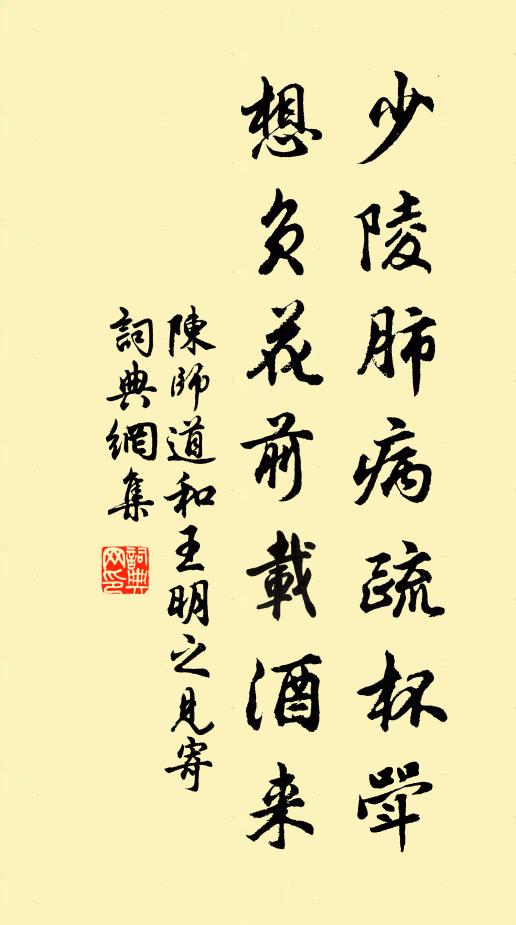 少陵肺病疏杯斝
想负花前載酒来
陳師道和王明之見寄
詞典網集
詞典網印